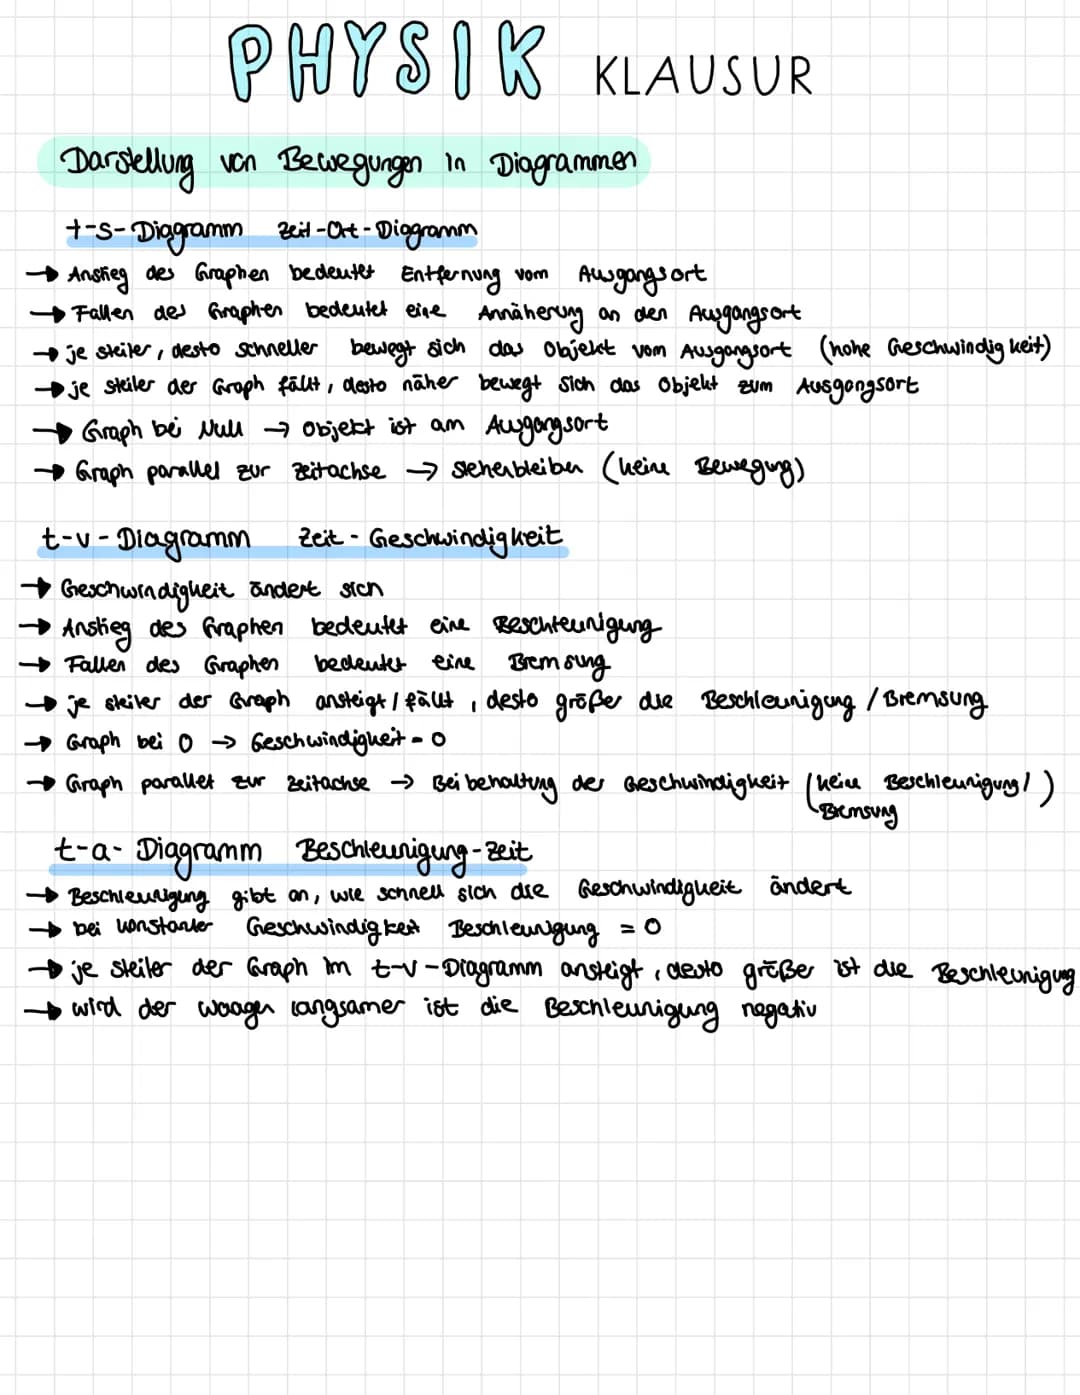 PHYSIK KLAUSUR
Darstellung von Bewegungen in Diagrammen
t-s-Diagramm Zeit-Ort-Diagramm
→ Anstieg des Graphen bedeutet Entfernung vom Ausgangsort
→ Fallen des Graphen bedeutet eine Annäherung an den Ausgangsort
→ je steiler, desto schneller bewegt sich das Objekt vom Ausgangsort (hohe Geschwindigkeit)
→ je steiler der Graph fällt, desto näher bewegt sich das Objekt zum Ausgangsort
→ Graph bei Null → Objekt ist am Ausgangsort
→ Graph parallel zur Zeitachse → stehenbleiben (keine Bewegung)
t-v-Diagramm Zeit-Geschwindigkeit
→ Geschwindigkeit ändert sich
→ Anstieg des Graphen bedeutet eine Beschleunigung
→ Fallen des Graphen bedeutet eine Bremsung
→ je steiler der Graph ansteigt/fällt, desto größer die Beschleunigung/Bremsung
→ Graph bei 0 → Geschwindigkeit = 0
→ Graph parallel zur Zeitachse → Beibehaltung der Geschwindigkeit (keine Beschleunigung/
Bremsung)
t-a-Diagramm Beschleunigung-Zeit
→ Beschleunigung gibt an, wie schnell sich die Geschwindigkeit ändert
→ bei konstanter Geschwindigkeit Beschleunigung = 0
→ je steiler der Graph im t-v-Diagramm ansteigt, desto größer ist die Beschleunigung
→ wird der Waagen langsamer ist die Beschleunigung negativ